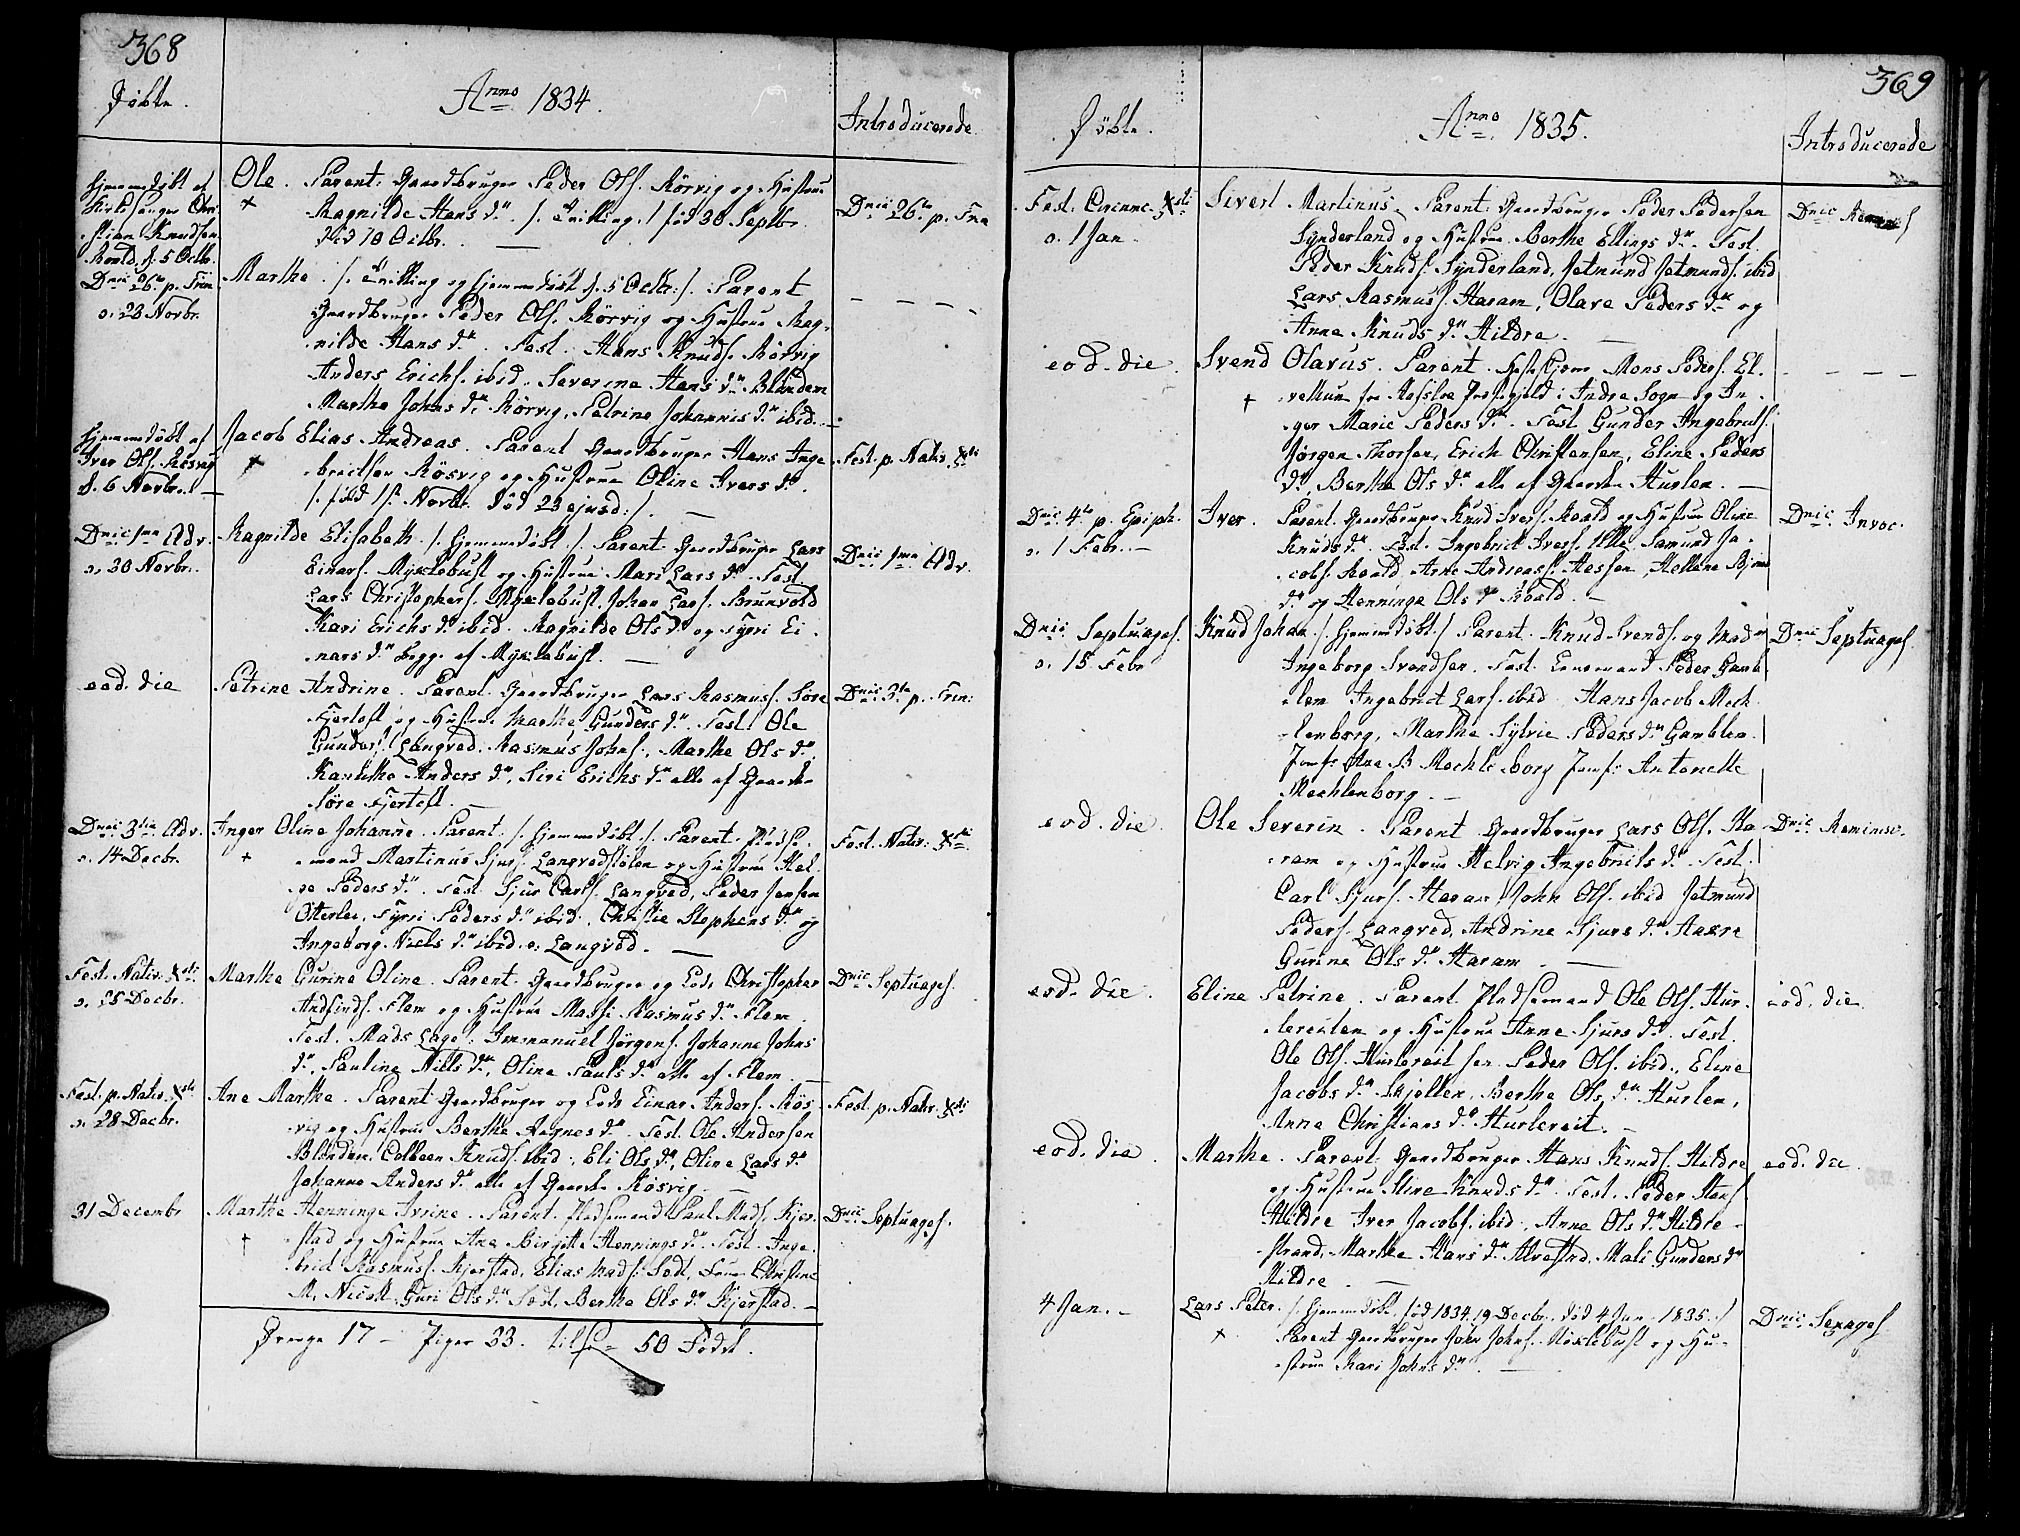 368
Døbte.
Anno 1834.
Introducerede
Hjemmedøbt af
Kirkesanger Chri-
stian Knudsen
Roald d. 5 Octbr.
Ole. Parent. Gaardbruger Peder Ols. Rörvig og Hustrue
Ragnilde Hans d. /: Tvilling :/ fød 30 Septbr.
død 10 Octbr.
Dnic 26 p. Trin
Dnic 26 p. Trin
o: 23 Novbr.
Marthe. /: Tvilling og hjemmedøbt d. 5 Octbr :/ Parent
Gaardbruger Peder Ols. Rörvig og Hustrue Rag-
nilde Hans d. Test. Hans Knuds. Rörvig
Anders Erichs. ibid. Severine Hans d. Blindem
Marthe Johns d. Rörvig, Petrine Johannis d. ibid.
Hjemmedøbt af
Iver Ols. Rösvig
d. 6 Novbr.
Jacob Elias Andreas. Parent Gaardbruger Hans Inge
brectsen Rösvig og Hustrue Oline Ivers d.
/: fød 1st Novbr. død 23 ejusd :/.
Fest. p. Nativ. Xsti
Dnic 1ma Adv.
o: 30 Novbr.
Ragnilde Elisabeth. /: hjemmedøbt :/. Parent. Gaardbruger Lars
Einars. Myklebust og Hustrue Mari Lars d. Test.
Lars Christophers. Myklebust, Johan Lars. Brunvold
Kari Erichs d. ibid. Ragnilde Ols d. og Syri Ei-
nars d. begge af Myklebust.
Dnic 1ma Adv.
eod. die
Petrine Andrine. Parent. Gaardbruger Lars Rasmus. Søre
Fjertoft og Hustrue Marthe Gunders d. Test. Ole
Gunders. Langved, Rasmus Johns., Marthe Ols d.
Anders d., Siri Erichs d. alle af Gaarden
Søre Fjertoft.
Dnic 3 p. Trin:
Dnic 3tia Adv.
o: 14 Decbr.
Inger Oline Johanne. Parent. /: hjemmedøbt :/. Parent. Pladse-
mand Martinus Sjurs. Langvedstølen og Hustrue Hel-
ge Peders d. Test. Sjur Carls. Langved, Peder Jensen
Otterlei, Syri Peders d. ibid., Christie Stephens d. og
Ingeborg Niels d. ibid. o: Langved.
Fest. Nativ: Xsti
Fest. Nativ. Xsti
o: 25 Decbr.
Marthe Gurine Oline. Parent. Gaardbruger og Lods Christopher
Andfinds. Flem og Hustrue Massi Rasmus d. Flem.
Test. Mads Lage: Immanuel Jörgens. Johanne Johns
d., Pauline Niels d., Oline Pauls d. alle af Flem.
Dnic Septuages.
Fest. p. Nativ. Xsti
o: 28 Decbr.
Ane Marthe. Parent Gaardbruger og Lods Einar Anders. Rös-
vig og Hustrue Berthe Agnes d. Test. Ole Andersen
Blindem, Colbeen Knuds. ibid., Eli Ols d., Oline Lars d.
Johanne Anders d. alle af Gaarden Rösvig.
Fest. p. Nativ. Xsti
31 Decembr
Marthe Henninge Ivrine. Parent. Pladsemand Paul Mads. Kjer-
stad og Hustrue Ane Birgitte Hennings d. Test. Inge-
brict Rasmus. Kjerstad, Elias Mads. Sodt, Frue Christine
M. Guri Ols d. Sodt, Berthe Ols d. Kjerstad.
Dnic Septuages.
Drenge 17 - Piger 33. tils. = 50 Fødte.
369
Døbte.
Anno 1835.
Introducerede
Fest. Circumc. Xsti
o. 1 Jan.
Sivert Martinus. Parent. Gaardbruger Peder Pedersen
Synderland og Hustrue Berthe Ellings d. Test.
Peder Knuds. Synderland, Jetmund Jetmunds. ibid
Lars Rasmus. Haram, Olave Peders d. og
Anne Knuds d. Hildre.
Dnic
eod. die.
Svend Olavus. Parent. Mons Peders. El-
fra Hafsloe Præstegjeld i Indre Sogn og In-
ger Marie Peders d. Test Gunder Ingebrits.
Jörgen Thorsen, Erich Christensen, Eline Peders
d., Berthe Ols d. alle af Gaarden Hurlen.
Dnic. 4 p. Epiph.
o. 1 Febr.
Iver. Parent. Gaardbruger Knud Ivers. Roald og Hustrue Oline
Knuds d. Test. Ingebrict Ivers. Ulle, Samund Ja-
cobs. Roald, Arne Andreas. Hessen, Hellene
d. og Henninge Ols d. Roald.
Dnic. Invoc.
Dnic. Septuages.
o. 15 Febr
Knud Johan. /: hjemmedøbt :/ Parent. Knud Svends. og Mad.
Ingeborg Svendsen. Test. Lensmand Peder Gam-
lem, Ingebrict Lars. ibid Hans Jacob Mech-
lenborg, Marthe Sylvie Peders d. Gamlem
Jomf: Ane B Mechlenborg Jomf: Antonette
Mechlenborg.
Dnic Septuages.
eod. die.
Ole Severin. Parent Gaardbruger Lars Ols. Ha-
ram og Hustrue Helvig Ingebrits d. Test.
Carl Sjurs. Haram, John Ols. ibid Jetmund
Peders. Langved, Andrine Sjurs d.
Gurine Ols d. Haram.
Dnic. Reminisc.
eod. die.
Eline Petrine. Parent. Pladsemand Ole Ols. Hur-
lereiten og Hustrue Anne Sjurs d. Test.
Ole Ols. Hurlereit sen. Peder Ols. ibid., Eline
Jacobs d. Skjelten, Berthe Ols d. Hurlen,
Anne Christians d. Hurlereit.
eod. die
eod. die.
Marthe. Parent. Gaardbruger Hans Knuds. Hildre
og Hustrue Stine Knuds d. Test. Peder Hans.
Hildre Iver Jacobs. ibid., Anne Ols d. Hildre-
strand, Marthe Hans d. Alvestad, Mali Gunders d.
Hildre.
eod. die.
4 Jan.
Lars Peter. /: hjemmedøbt, fød 1834 19 Decbr. død 4 Jan. 1835. :/
Parent Gaardbruger John Johns. Myklebust og Hu-
strue Kari Johns d.
Dnic Sexages.